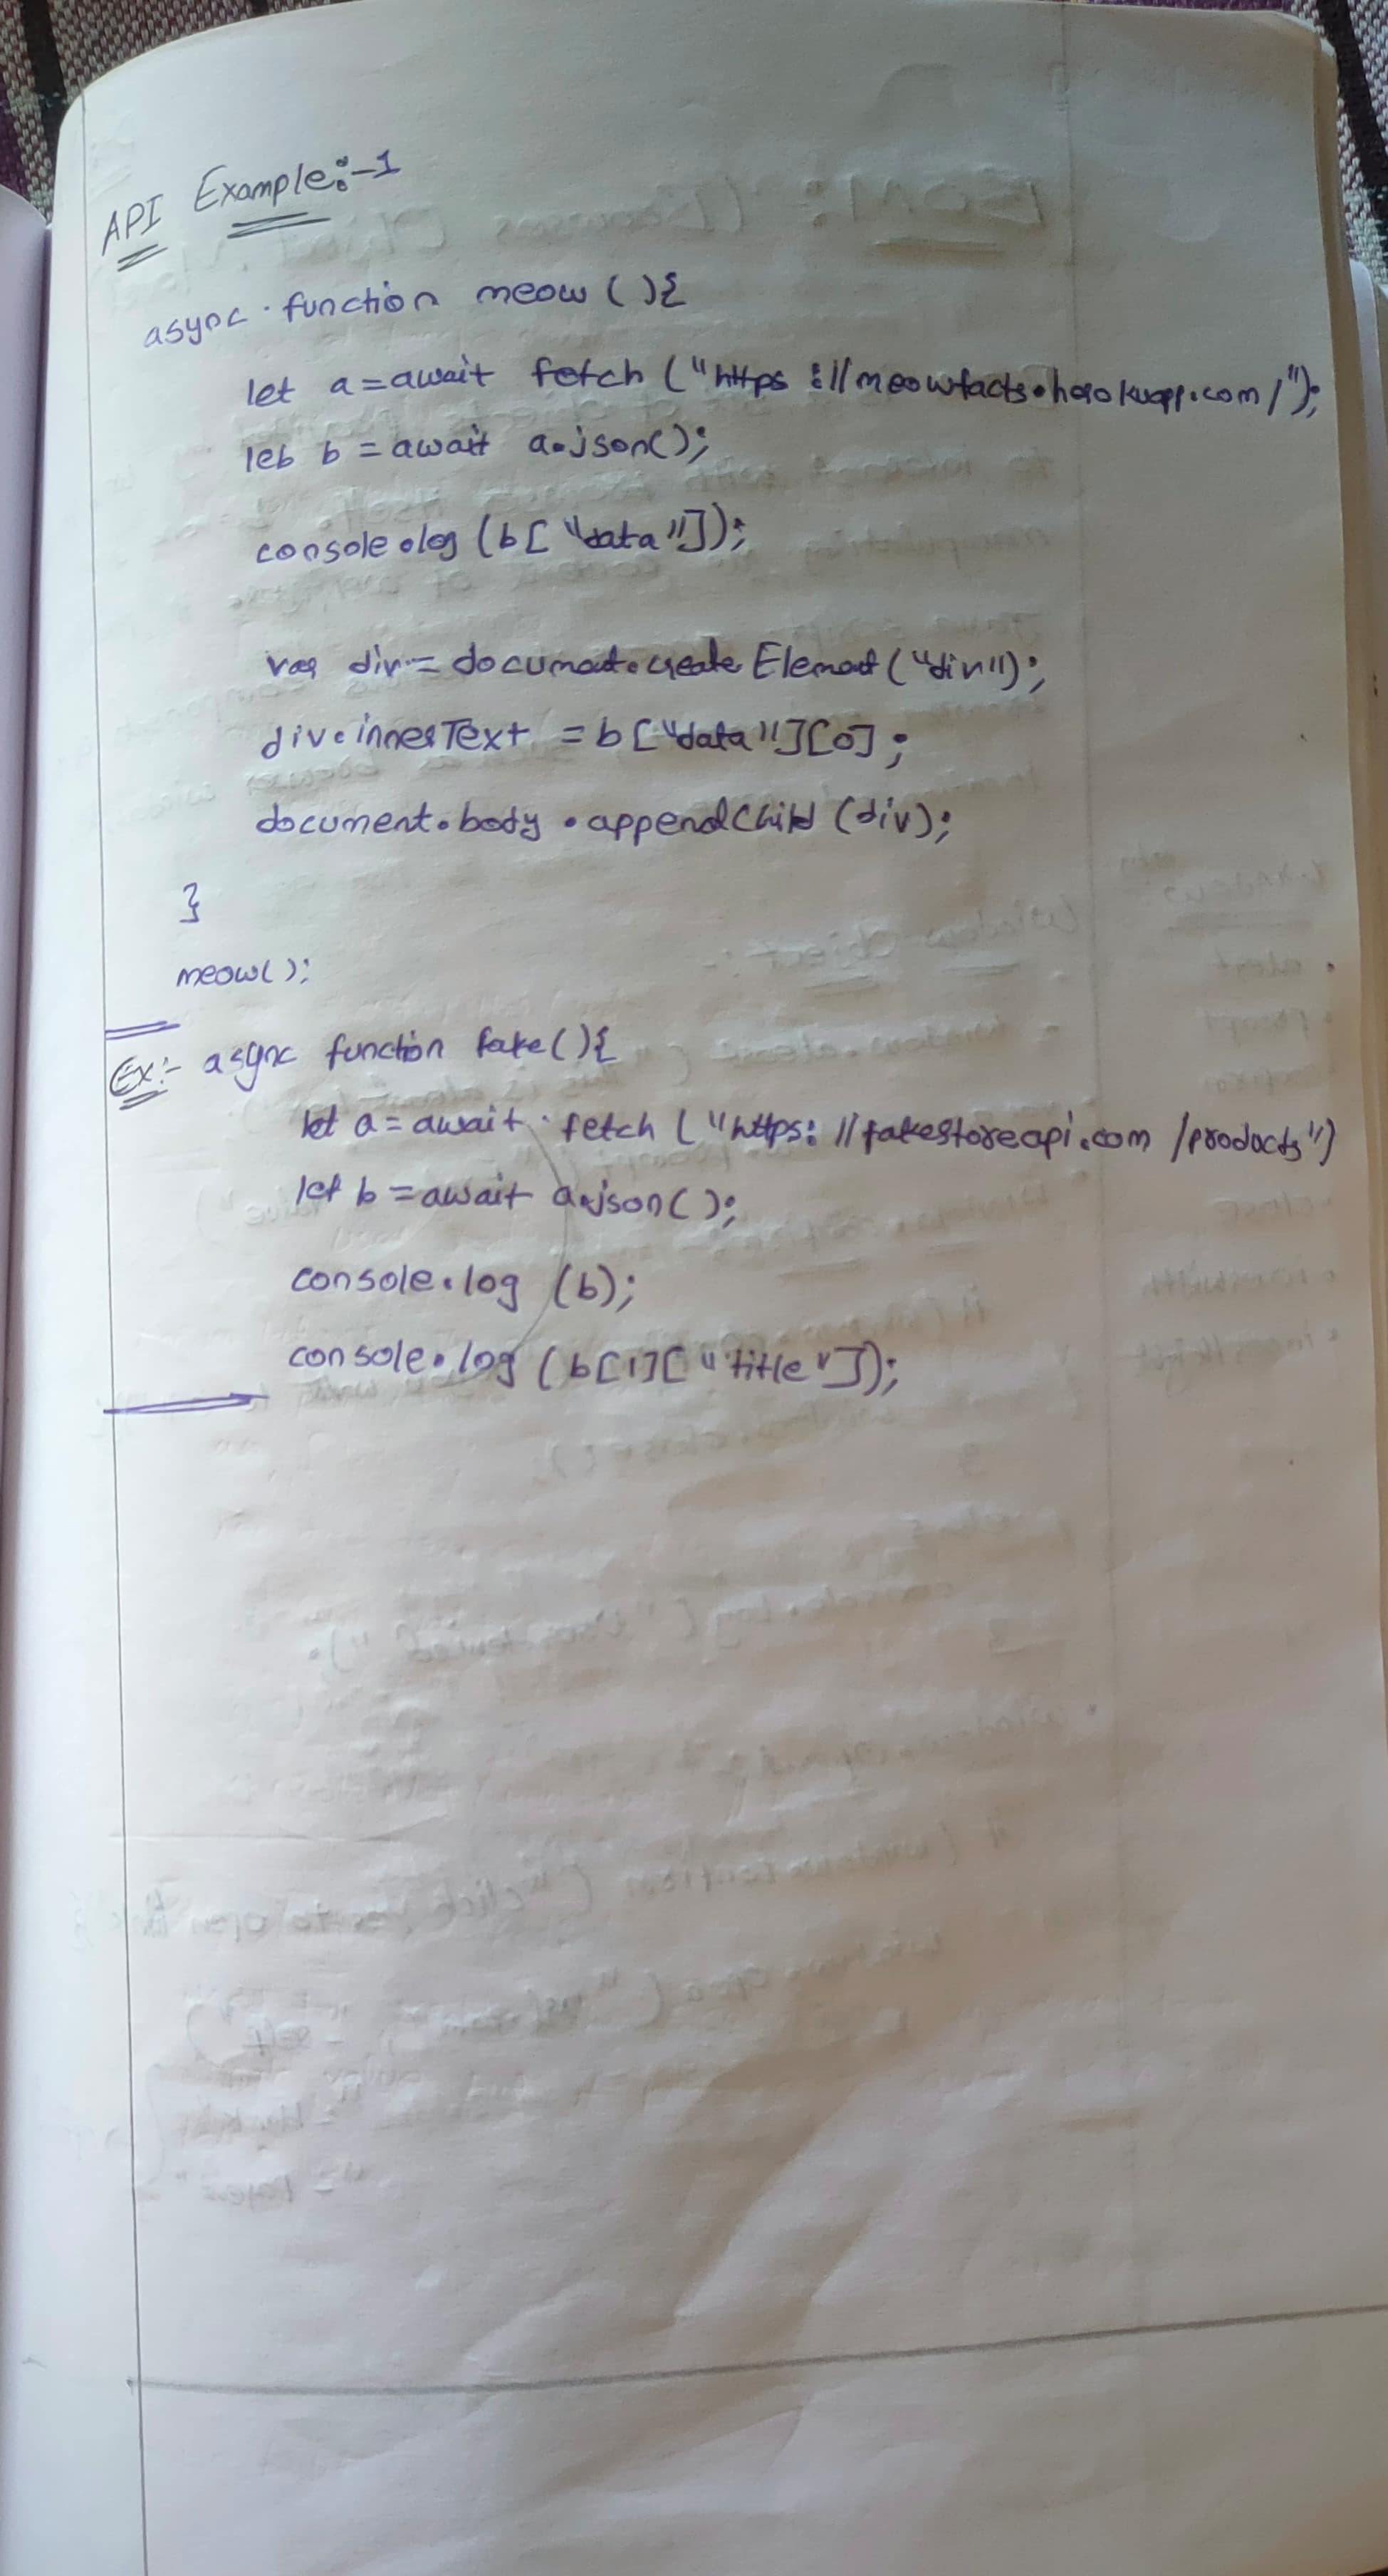 API Example:-1
async function meow (){
let a = await fetch ("https://meowfacts.herokuapp.com/");
let b = await a.json();
console.log (b["data"]);
var div = document.createElement("div");
div.innerText = b["data"][0];
document.body.appendChild (div);
}
meow();
Ex:- async function fake(){
let a = await fetch ("https://fakestoreapi.com/products")
let b = await a.json();
console.log (b);
console.log (b[1]["title"]);